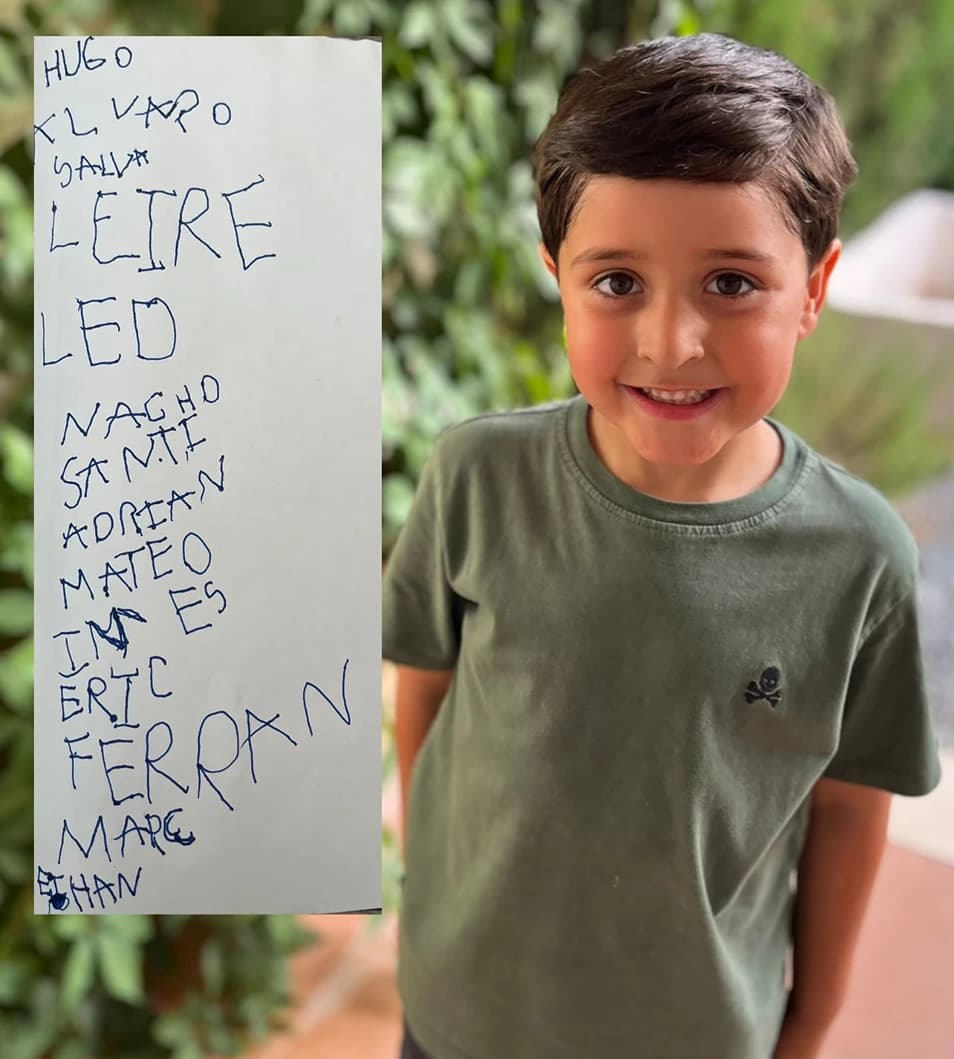 HUGO
ALVARO
SALVA
LEIRE
LEO
NACHO
SANTI
ADRIAN
MATEO
INES
ERIC
FERRAN
MARC
ETHAN